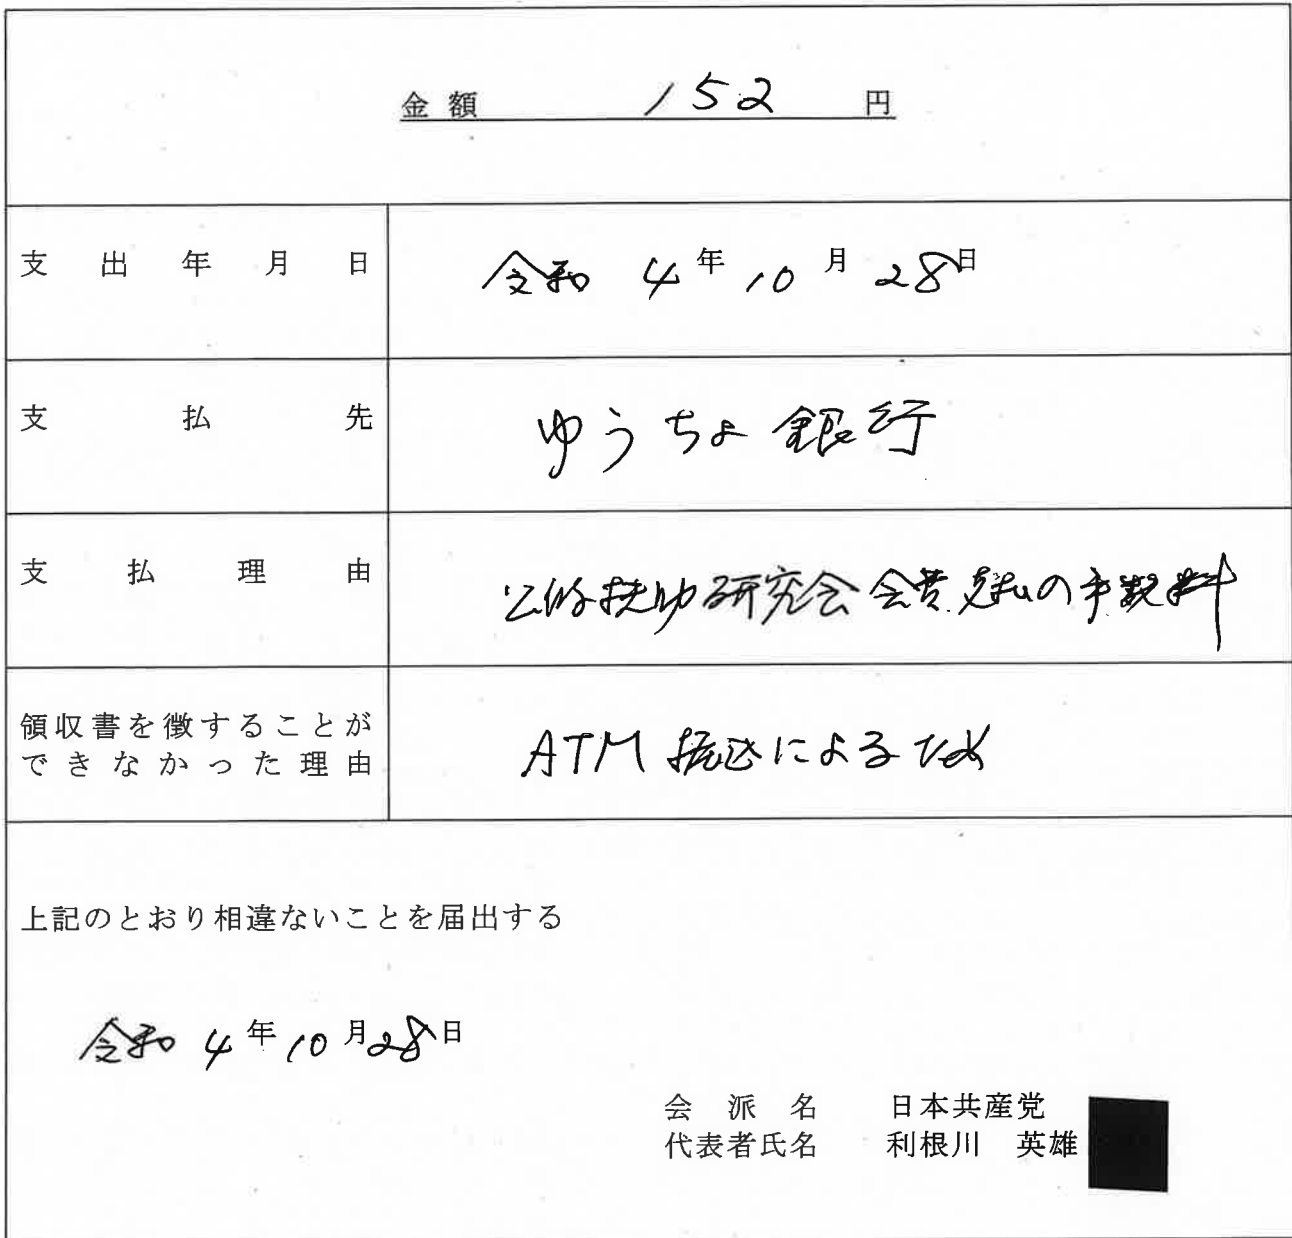 金額 152 円
支出年月日 令和 4年 10月 28日
支払先 ゆうちょ銀行
支払理由 公的扶助研究会 会費 支払の手数料
領収書を徴することが
できなかった理由 ATM振込によるため
上記のとおり相違ないことを届出する
令和 4年 10月 28日
会派名 日本共産党
代表者氏名 利根川 英雄